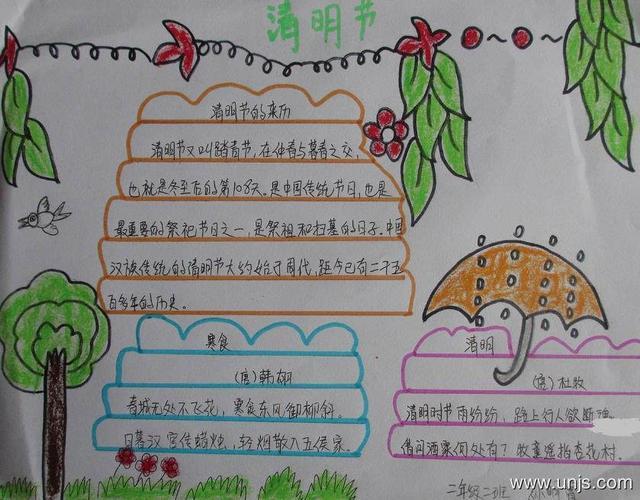 清明节
清明节的来历
清明节又叫踏青节,在仲春与暮春之交,
也就是冬至后的第108天。是中国传统节日,也是
最重要的祭祀节日之一,是祭祖和扫墓的日子。中国
汉族传统的清明节大约始于周代,距今已有二千五
百多年的历史。
寒食
(唐)韩翃
春城无处不飞花,寒食东风御柳斜。
日暮汉宫传蜡烛,轻烟散入五侯家。
清明
(唐)杜牧
清明时节雨纷纷,路上行人欲断魂
借问酒家何处有?牧童遥指杏花村.
二年级二班
www.unjs.com